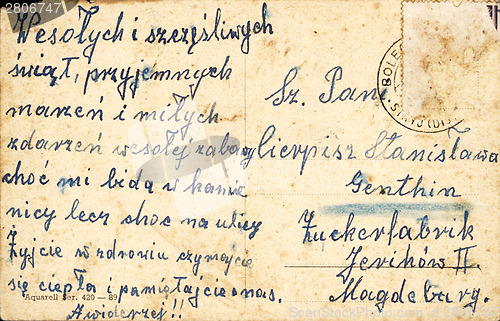 2806747
Wesołych i szczęśliwych
świąt, przyjemnych
marzeń i miłych
zdarzeń wesołej zabawy
choć mi bidą w kamie
nicy lecz choc na ulicy
Żyjcie w zdroviu czymajcie
się ciepła i pamiętajcie o nas.
Awiderzei !!
Aquarell Ser. 420 — 89
BOLE
STRYJ (D)
Sz. Pani
Cierpisz Stanisława
Genthin
Zuckerfabrik
Jerihów II.
Magdeburg.